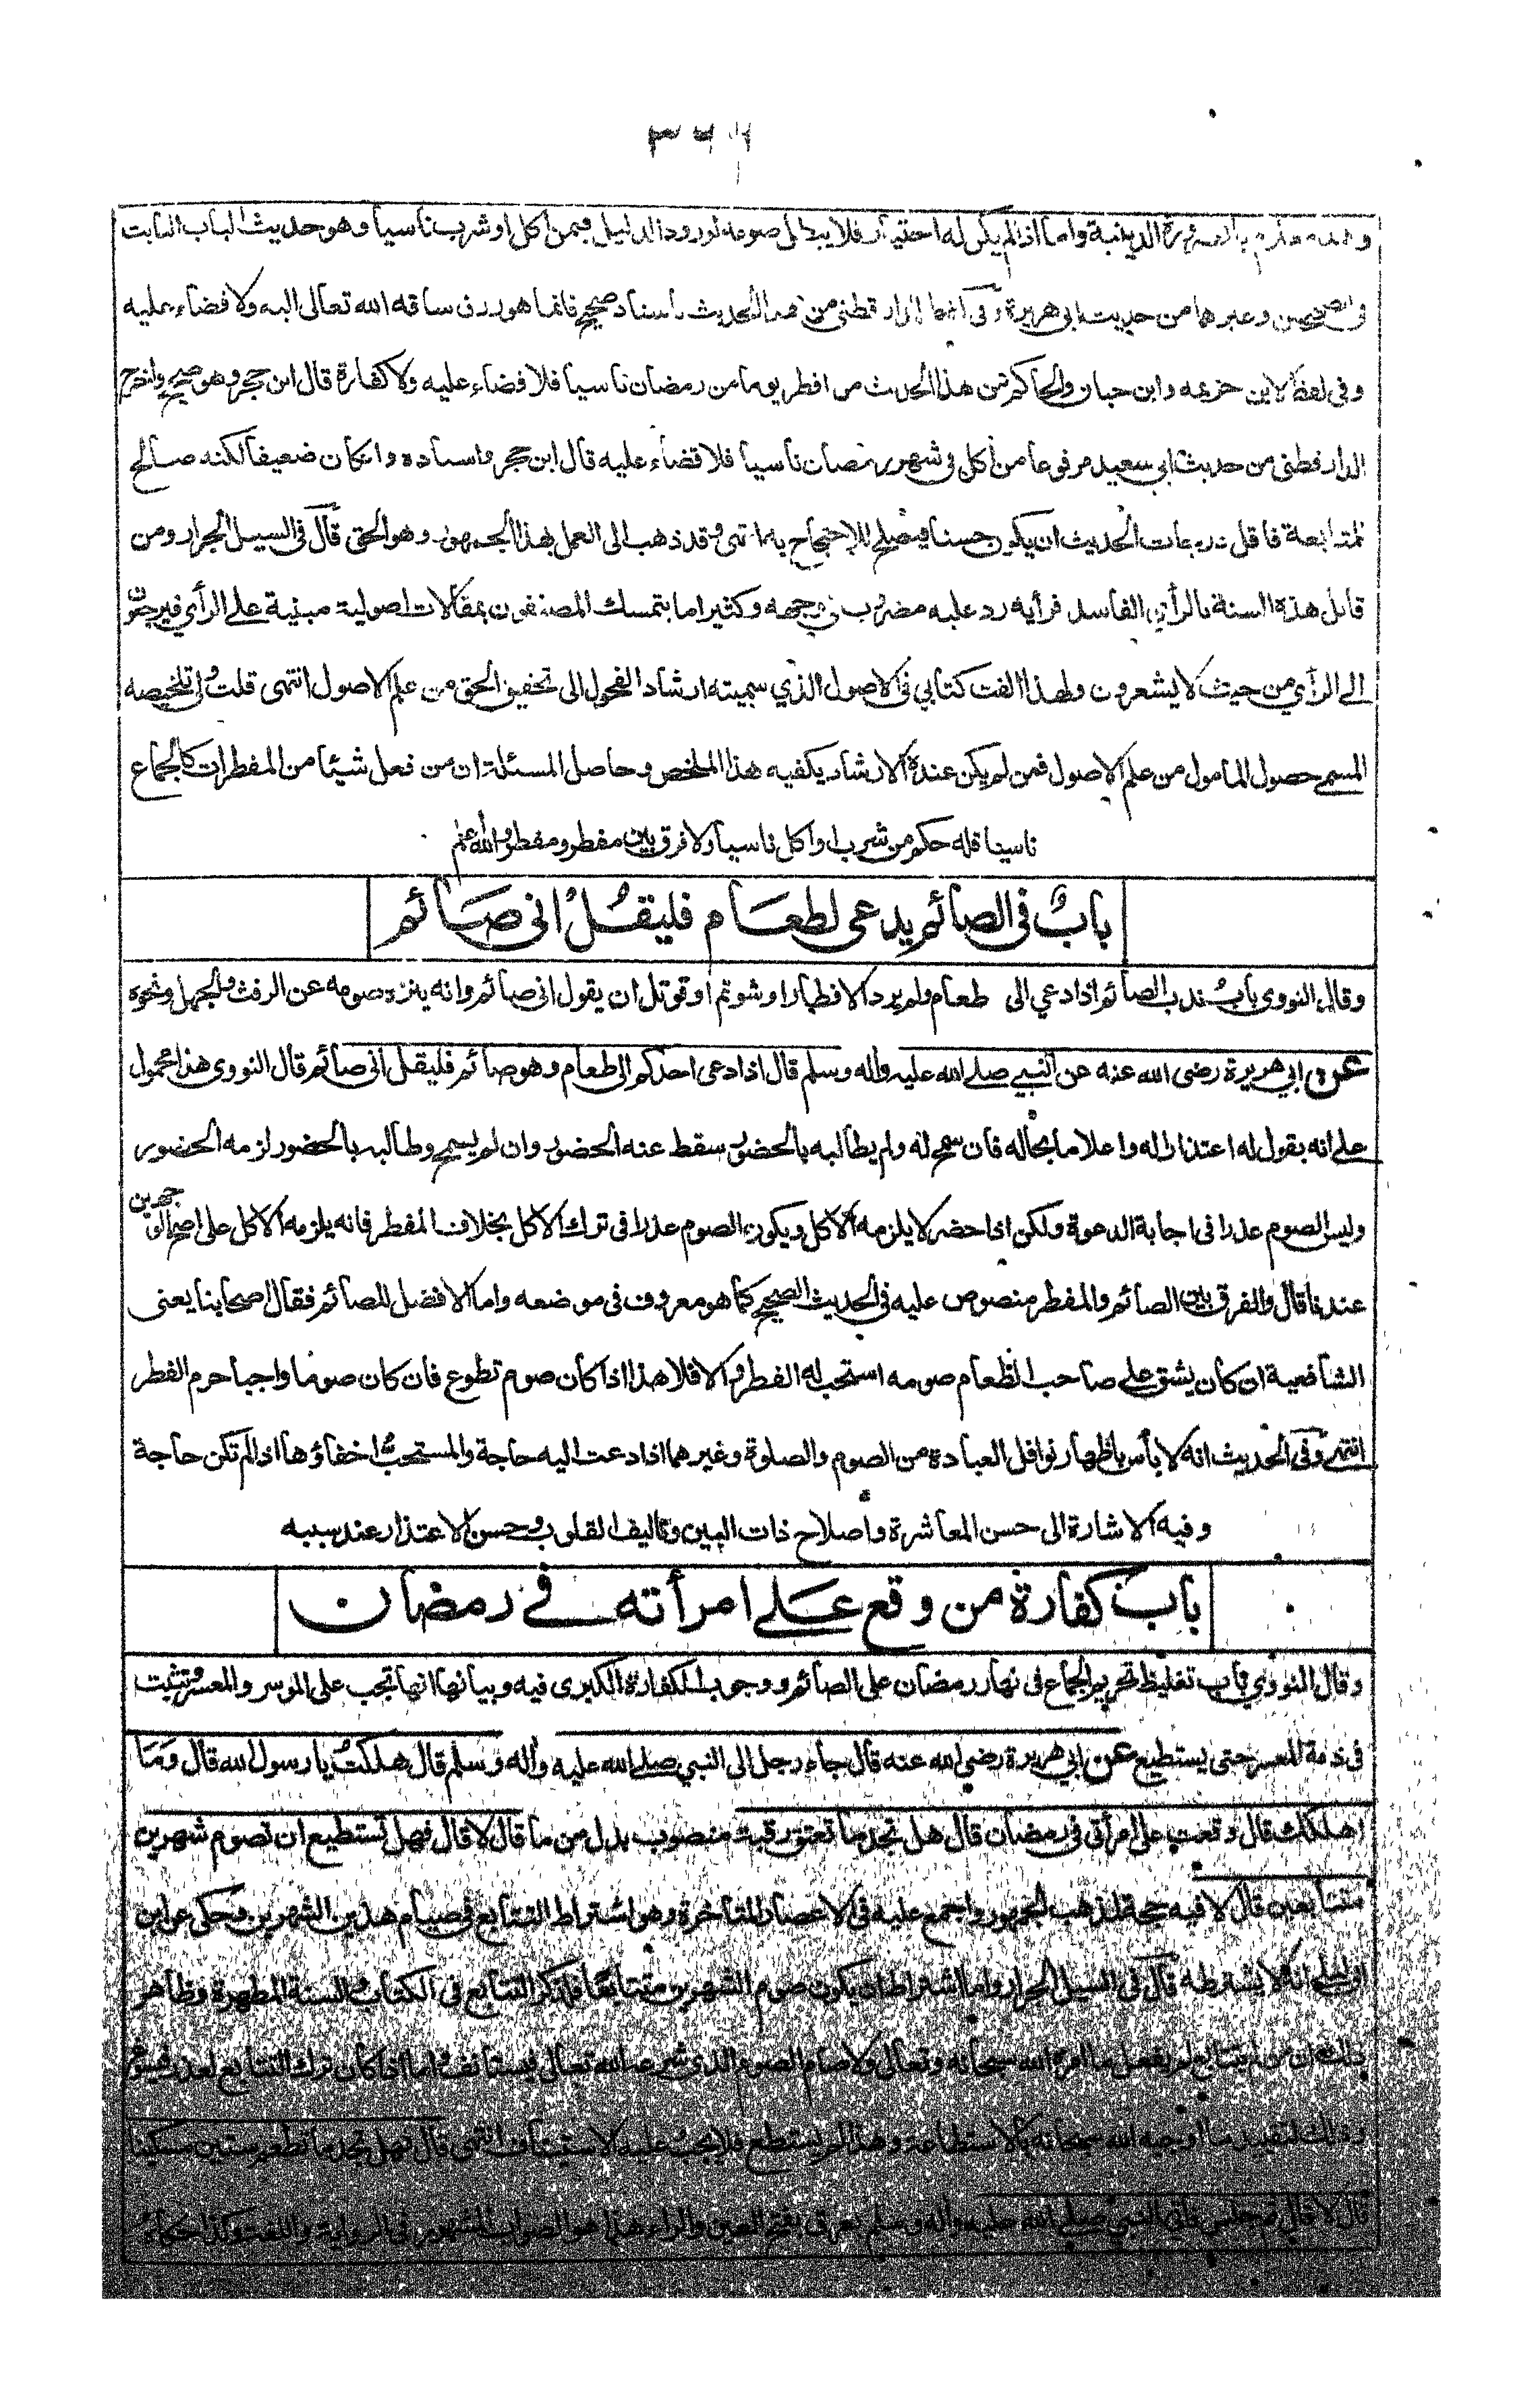 وهذه معلوم بالضرورة الدينية واما اذا لم يكن له اختيار فلا يبطل صومه لورود الدليل فيمن اكل او شرب ناسيا وهو حديث الباب الثابت
فى الصحيحين وغيرهما من حديث ابي هريرة وفى لفظ الدارقطنى من هذا الحديث باسناد صحيح فانما هو رزق ساقه الله تعالى اليه ولا قضاء عليه
وفى لفظ لابن خزيمه وابن حبان والحاكم من هذا الحديث من افطر يوما من رمضان ناسيا فلا قضاء عليه ولا كفارة قال ابن حجر وهو صحيح واخرج
الدارقطنى من حديث ابي سعيد مرفوعا من اكل فى شهر رمضان ناسيا فلا قضاء عليه قال ابن حجر واسناده وان كان ضعيفا لكنه صالح
للمتابعة فاقل درجات الحديث ان يكون حسنا فيصلح للاحتجاج به انتهى وقد ذهب الى العمل بهذا الجمهور وهو الحق قال فى السيل الجرار ومن
قابل هذه السنة بالرأي الفاسد فرأيه رد عليه مضروب فى وجهه وكثيرا ما يتمسك المصنفون بمقالات اصولية مبنية على الرأي فيرجعون
الى الرأي من حيث لا يشعرون ولهذا الفت كتابي فى الاصول الذي سميته ارشاد الفحول الى تحقيق الحق من علم الاصول انتهى قلت ولى تلخيصه
المسمى حصول المامول من علم الاصول فمن لم يكن عنده الارشاد يكفيه هذا الملخص وحاصل المسئلة ان من فعل شيئا من المفطرات كالجماع
ناسيا فله حكم من شرب او اكل ناسيا ولا فرق بين مفطر ومفطر والله اعلم
باب فى الصائم يدعى لطعام فليقل انى صائم
وقال النووى باب ندب الصائم اذا دعي الى طعام ولم يرد الافطار او شوتم او قوتل ان يقول انى صائم وانه ينزه صومه عن الرفث والجهل ونحوه
عن ابي هريرة رضى الله عنه عن النبي صلى الله عليه واله وسلم قال اذا دعى احدكم الى طعام وهو صائم فليقل انى صائم قال النووى هذا محمول
على انه يقول له اعتذارا له واعلاما بحاله فان سمح له ولم يطالبه بالحضور سقط عنه الحضور وان لم يسمح وطالبه بالحضور لزمه الحضور
وليس الصوم عذرا فى اجابة الدعوة ولكن اذا حضر لا يلزمه الاكل ويكون الصوم عذرا فى ترك الاكل بخلاف المفطر فانه يلزمه الاكل على اصح الوجهين
عندنا قال والفرق بين الصائم والمفطر منصوص عليه فى الحديث الصحيح كما هو معروف فى موضعه واما الافضل للصائم فقال اصحابنا يعنى
الشافعية ان كان يشق على صاحب الطعام صومه استحب له الفطر والا فلا هذا اذا كان صوم تطوع فان كان صوما واجبا حرم الفطر
انتهى وفى الحديث انه لا بأس باظهار نوافل العبادة من الصوم والصلوة وغيرهما اذا دعت اليه حاجة والمستحب اخفاؤها اذا لم تكن حاجة
وفيه الاشارة الى حسن المعاشرة واصلاح ذات البين وتاليف القلوب وحسن الاعتذار عند سببه
باب كفارة من وقع على امرأته فى رمضان
وقال النووي باب تغليظ تحريم الجماع فى نهار رمضان على الصائم ووجوب الكفارة الكبرى فيه وبيانها انها تجب على الموسر والمعسر وتثبت
فى ذمة المعسر حتى يستطيع عن ابي هريرة رضي الله عنه قال جاء رجل الى النبي صلى الله عليه واله وسلم قال هلكت يا رسول الله قال وما
اهلكك قال وقعت على امرأتى فى رمضان قال هل تجد ما تعتق رقبة منصوب بدل من ما قال لا قال فهل تستطيع ان تصوم شهرين
متتابعين قال لا فيه حجة لمذهب الجمهور واجمع عليه فى الاعصار المتأخرة وهو اشتراط التتابع فى صيام هذين الشهرين وحكى عن ابن
ابي ليلى انه لا يشترطه قال فى السيل الجرار واما اشتراط ان يكون صوم الشهرين متتابعا فلذكر التتابع فى الكتاب والسنة المطهرة وظاهر
ذلك ان من لم يتابع لم يفعل ما امره الله سبحانه وتعالى ولا صام الصوم الذى شرعه الله تعالى فيستانف واما اذا كان ترك التتابع لعذر
وذلك لتقييد ما اوجبه الله سبحانه بالاستطاعة وهذا لم يستطع فلا يجب عليه الاستيناف انتهى قال فهل تجد ما تطعم ستين مسكينا
قال لا قال ثم جلس فاتى النبي صلى الله عليه واله وسلم بعرق بفتح العين والراء هذا هو الصواب المشهور فى الرواية واللغة وكذا حكاه